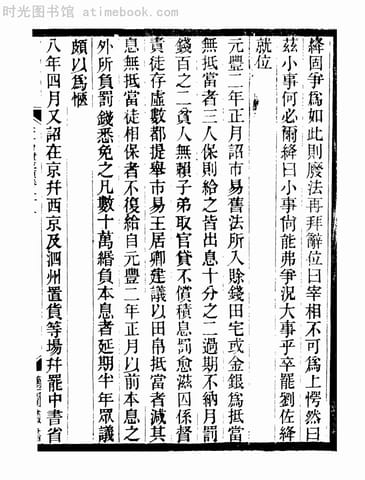 时光图书馆 atimebook.com
絳固爭爲如此則廢法再拜辭位曰宰相不可爲上愕然曰
茲小事何必爾絳曰小事尙能弗爭況大事乎卒罷劉佐絳
就位
元豐二年正月詔市易舊法所入賒錢田宅或金銀爲抵當
無抵當者三人保則給之皆出息十分之二過期不納月罰
錢百之二貧人無賴子弟取官貸不償積息罰愈滋囚係督
責徒存虛數都提舉市易王居卿建議以田帛抵當者減其
息無抵當徒相保者不復給自元豐二年正月以前本息之
外所負罰錢悉免之凡數十萬緡負本息者延期半年眾議
頗以爲愜
八年四月又詔在京幷西京及泗州置貨等場幷罷中書省